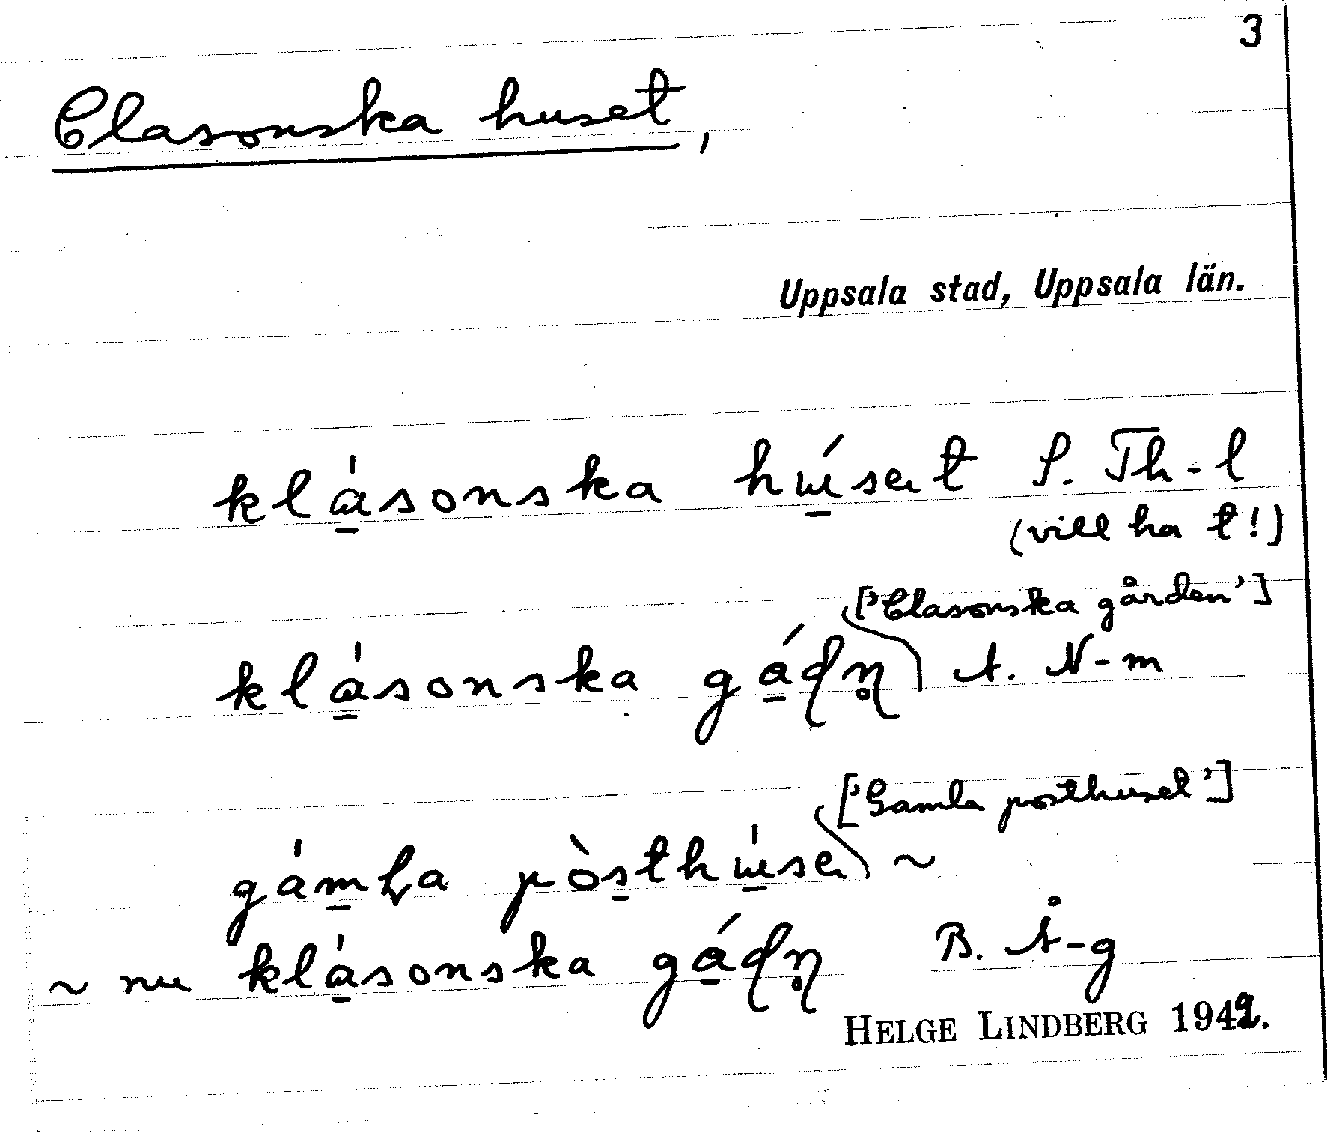 3
Clasonska huset,
Uppsala stad, Uppsala län.
klạ́sonska hɯ́sət S. Th-l
(vill ha t!)
['Clasonska gården']
klạ́sonska gạ́ɖɳ̥ A. N-m
['Gamla posthuset']
gám̱ɽa pòs̱thɯ́sə ~
~ nu klạ́sonska gạ́ɖɳ̥ B. Å-g
HELGE LINDBERG 1942.